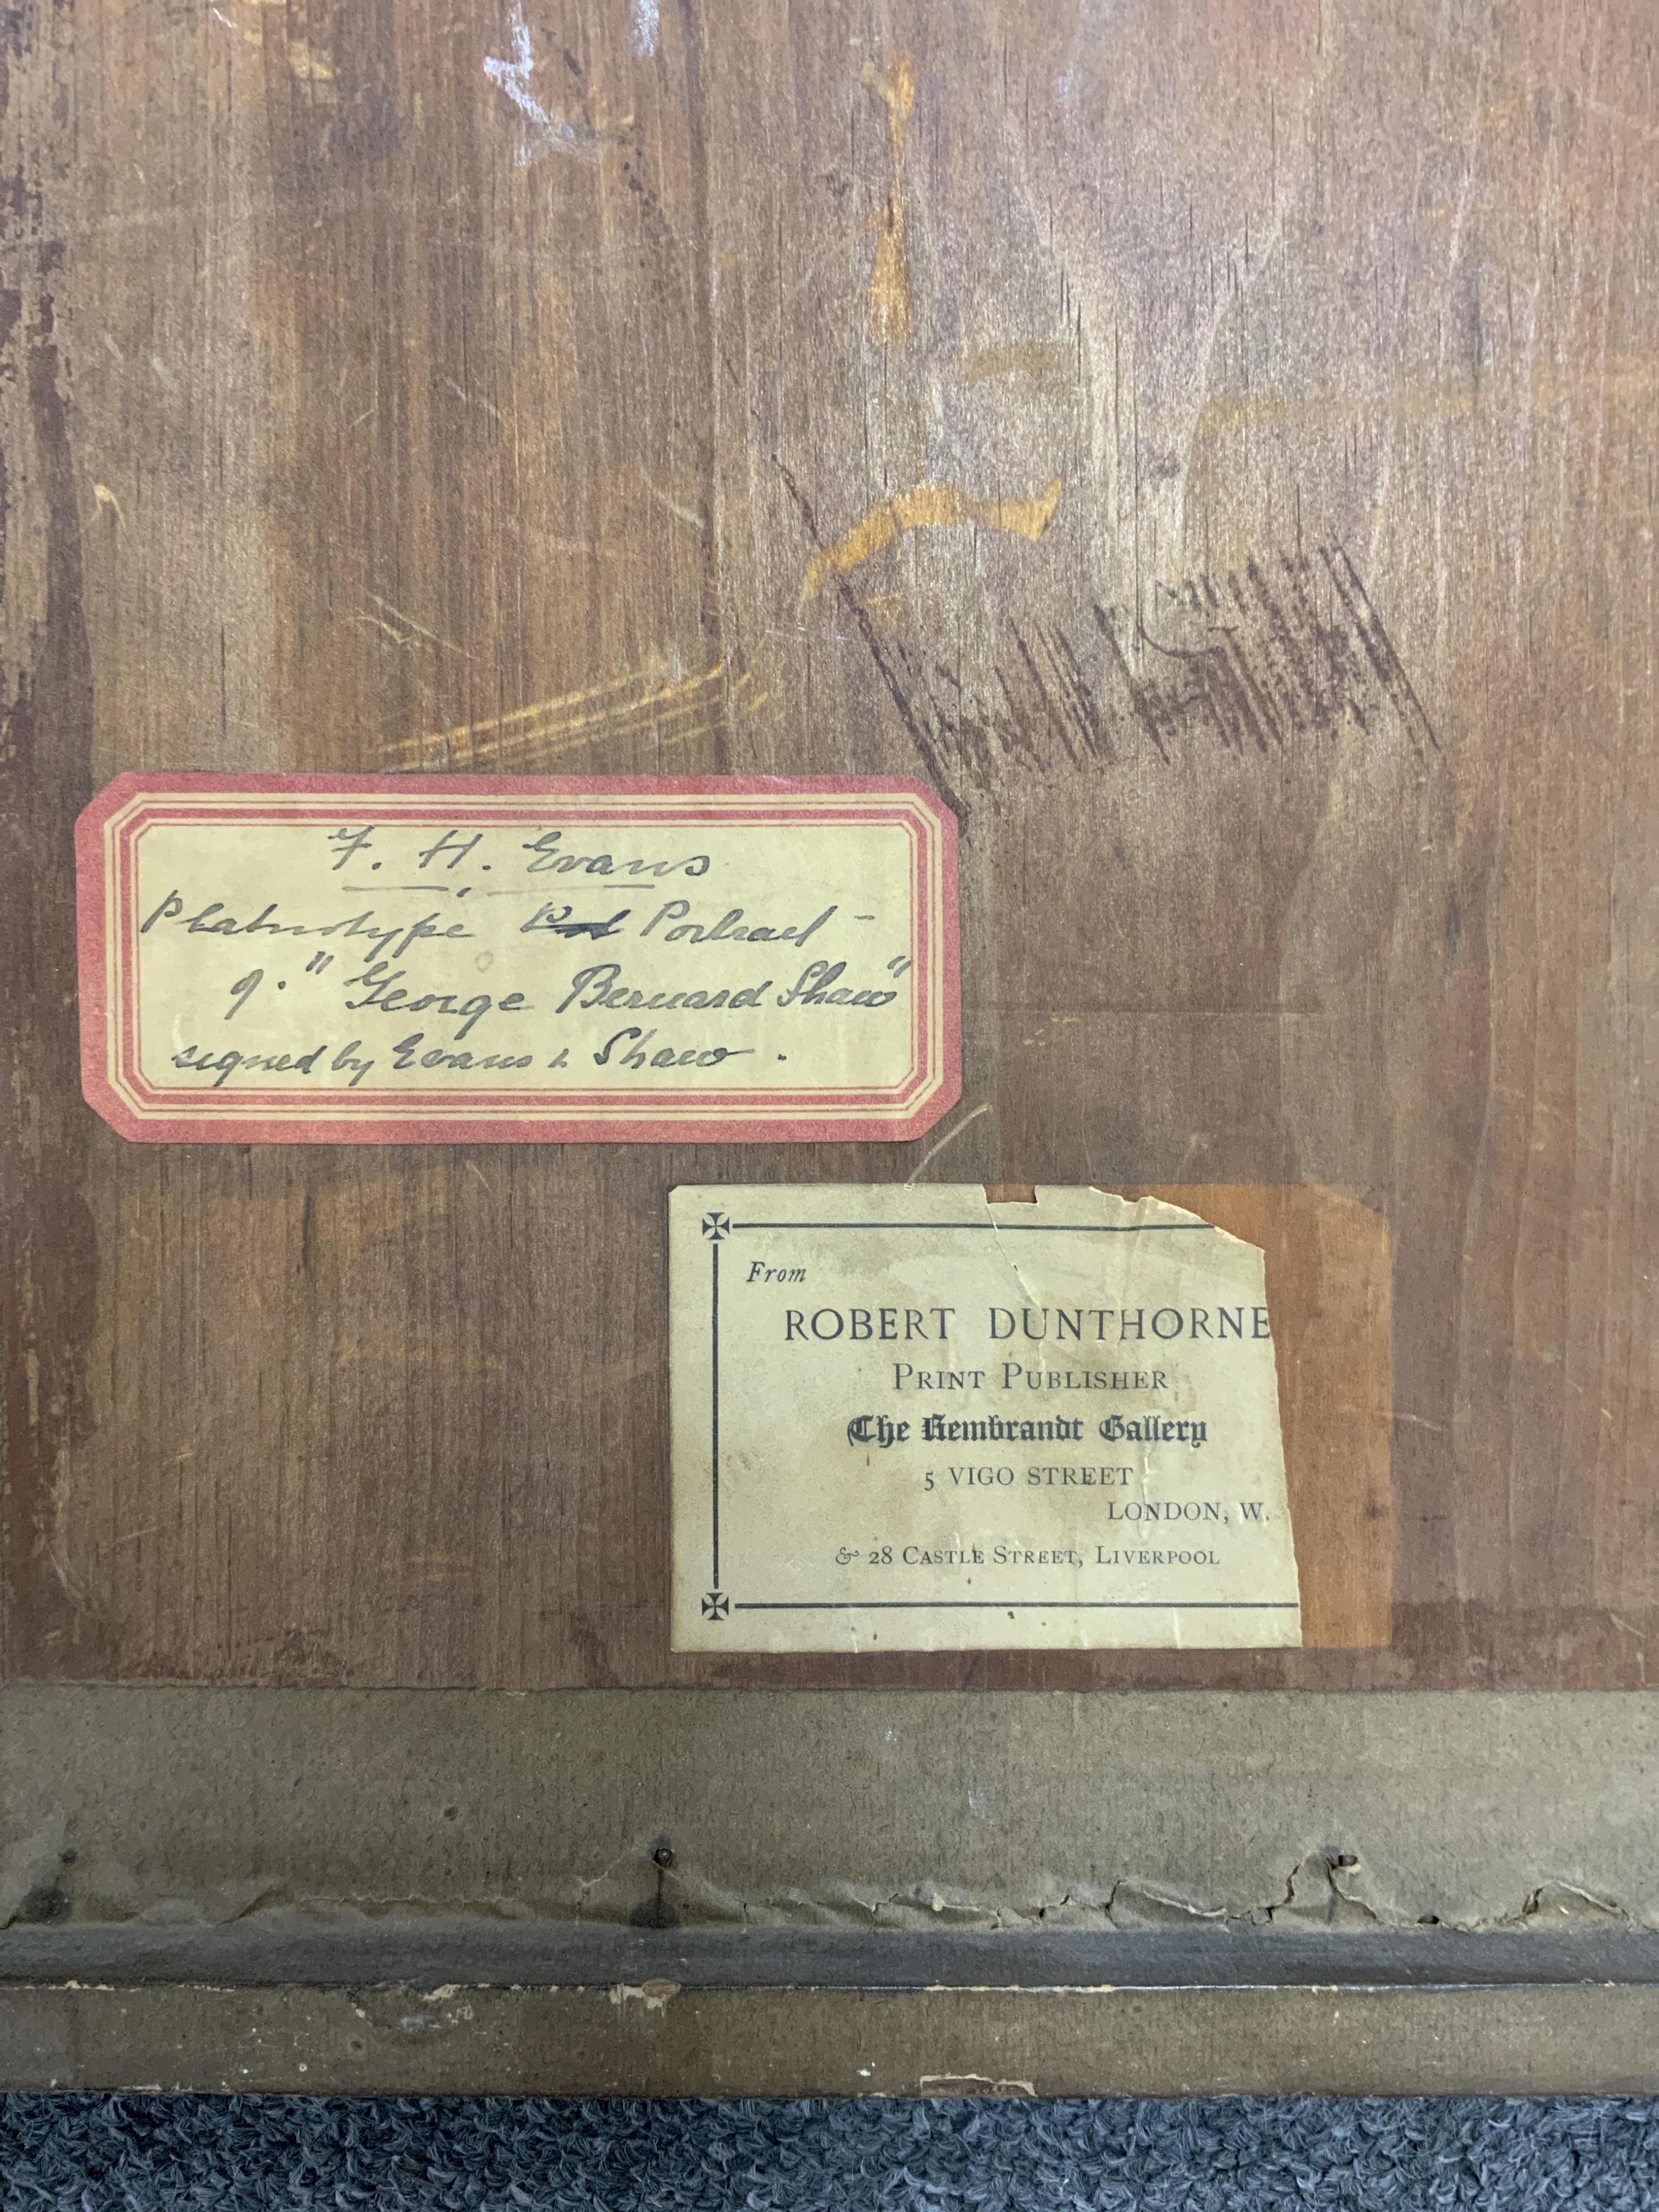 F. H. Evans
Platinotype Portrait -
of. "George Bernard Shaw"
signed by Evans & Shaw.
From
ROBERT DUNTHORNE
PRINT PUBLISHER
The Rembrandt Gallery
5 VIGO STREET
LONDON, W.
& 28 CASTLE STREET, LIVERPOOL